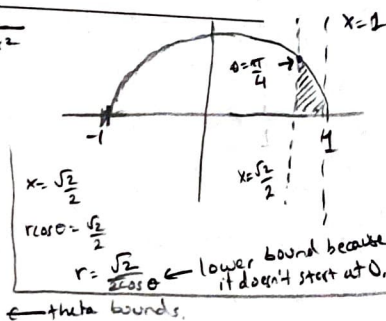 x=1
θ=π/4 →
-1
1
x=√2/2
x=√2/2
rcosθ=√2/2
r=√2/2cosθ ← lower bound because
it doesn't start at 0.
← theta bounds.